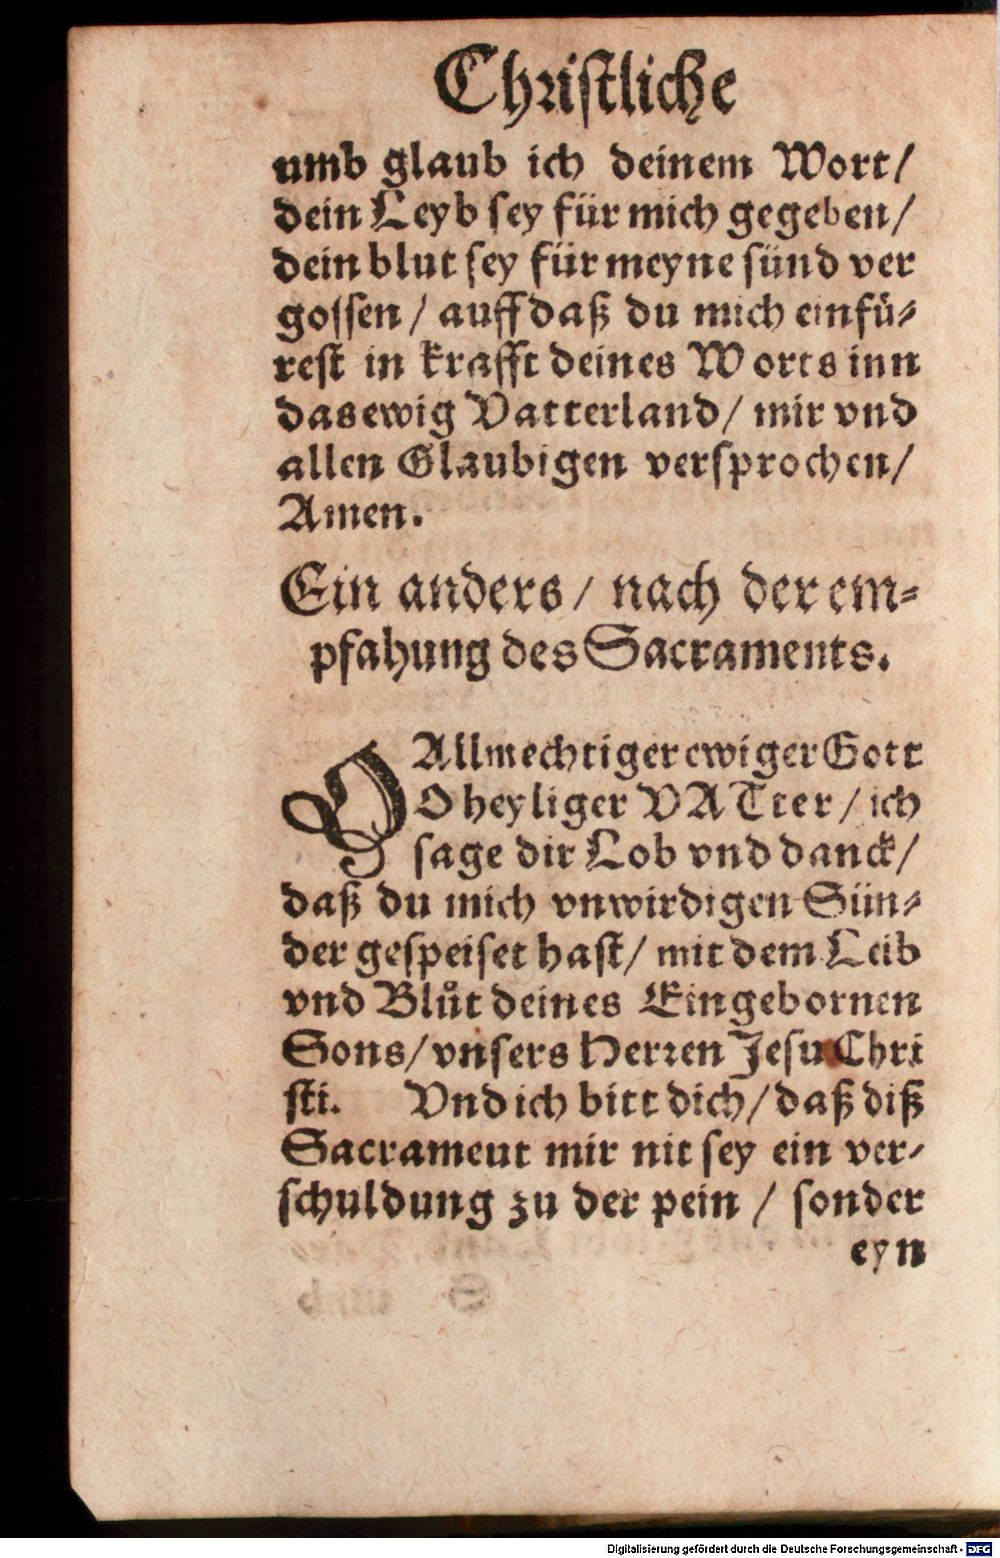 Christliche
umb glaub ich deinem Wort/
dein Leyb sey für mich gegeben/
dein blut sey für meyne sünd ver
gossen / auff daß du mich einfü⸗
rest in krafft deines Worts inn
das ewig Vatterland/ mir vnd
allen Glaubigen versprochen/
Amen.
Ein anders / nach der em⸗
pfahung des Sacraments.
O Allmechtiger ewiger Gott
O heyliger VATter / ich
sage dir Lob vnd danck/
daß du mich vnwirdigen Sün⸗
der gespeiset hast/ mit dem Leib
vnd Blůt deines Eingebornen
Sons/ vnsers Herren Jesu Chri
sti. Vnd ich bitt dich/ daß diß
Sacrament mir nit sey ein ver⸗
schuldung zu der pein / sonder
eyn
Digitalisierung gefördert durch die Deutsche Forschungsgemeinschaft - DFG